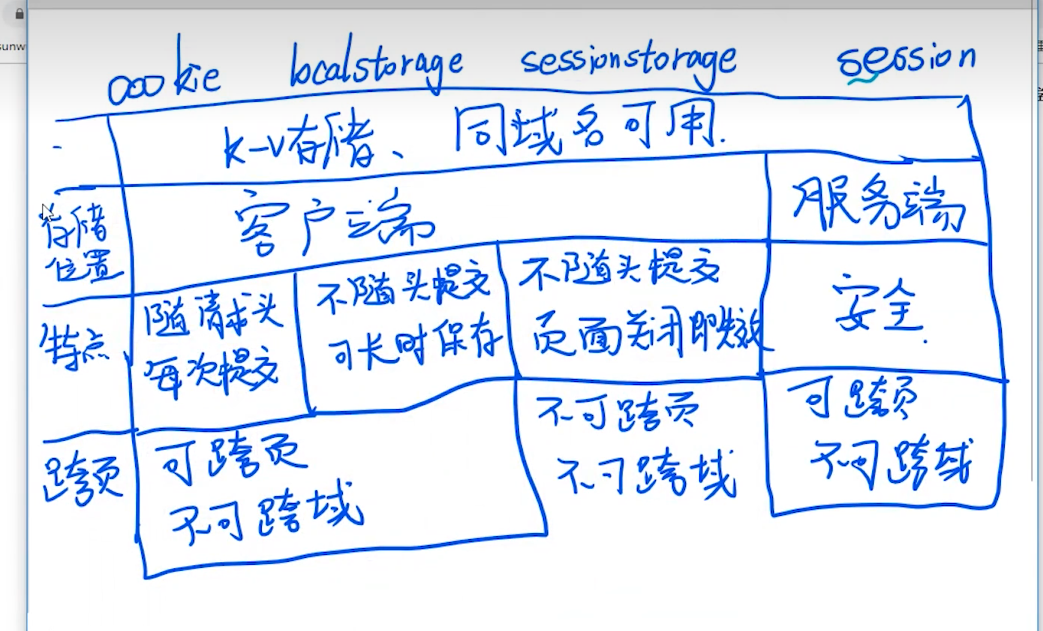 sunw
cookie localstorage sessionstorage session
k-v存储、同域名可用.
存储
位置
客户端
服务端
特点
随请求头
每次提交
不随头提交
可长时保存
不随头提交
页面关闭即失效
安全.
跨页
可跨页
不可跨域
不可跨页
不可跨域
可跨页
不可跨域